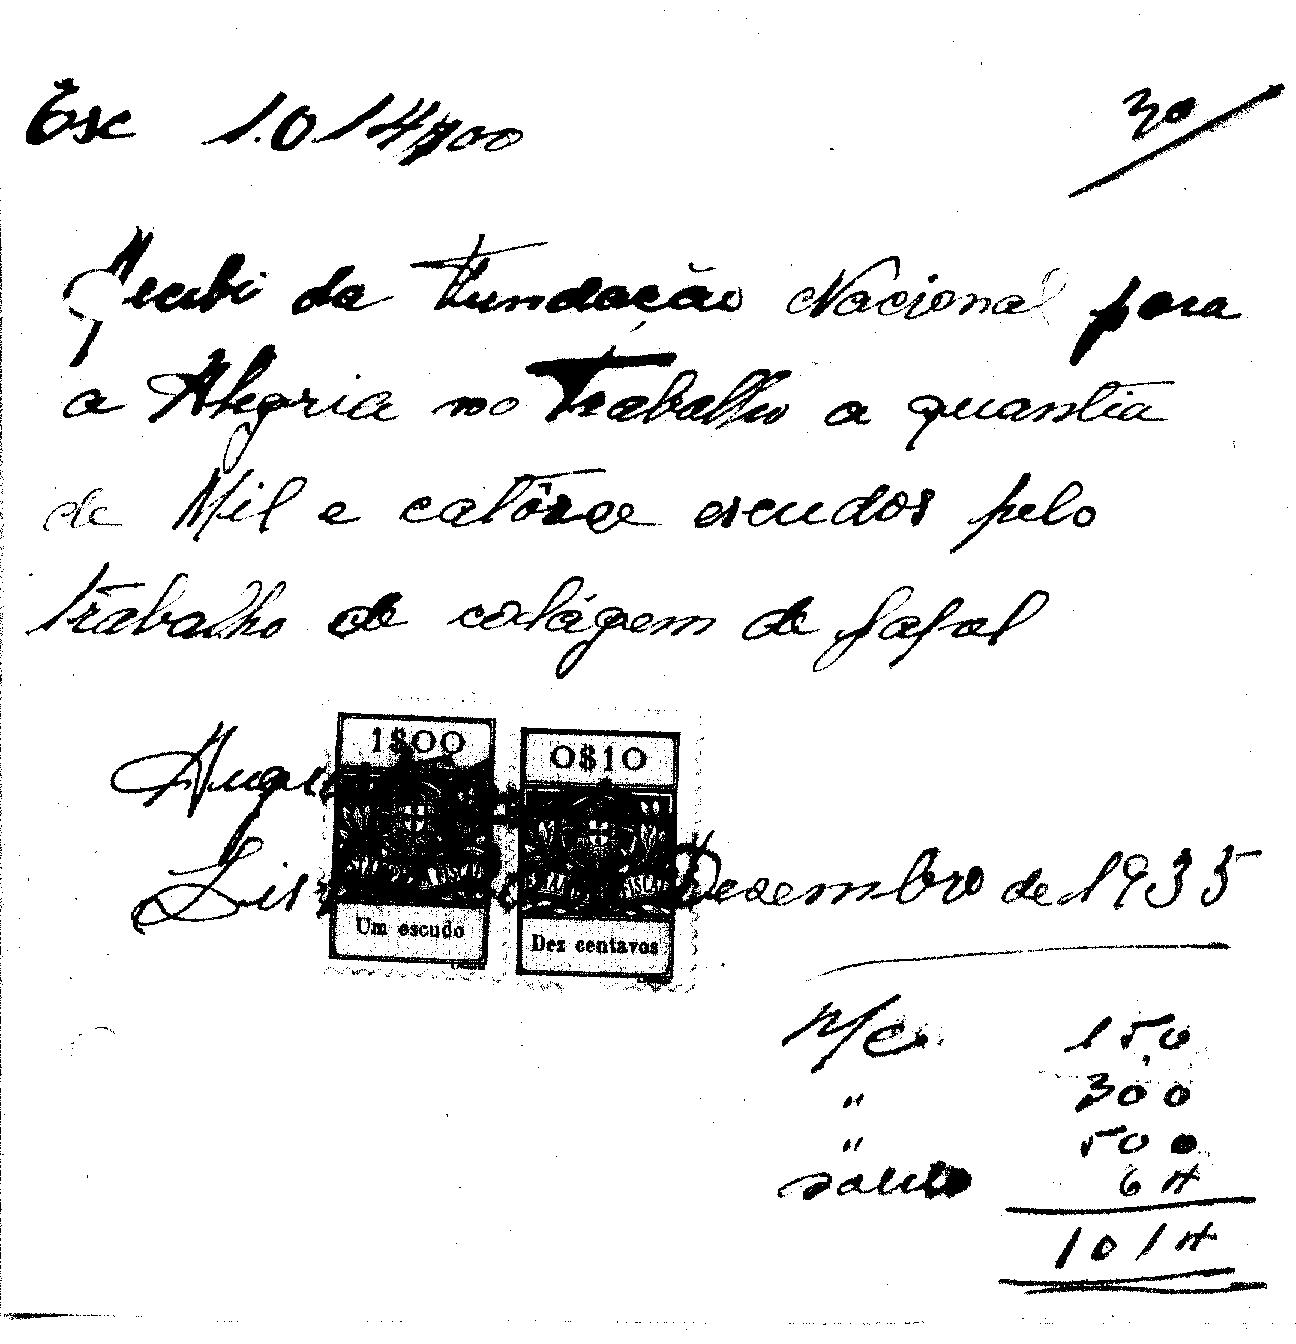 Esc 1.014$00
30
Recebi da Fundação Nacional para
a Alegria no Trabalho a quantia
de Mil e catôrze escudos pelo
trabalho de colágem de
1$00
0$10
Um escudo
Dez centavos
Dezembro de 1935
n/c 150
" 300
" 500
saldo 64
1014